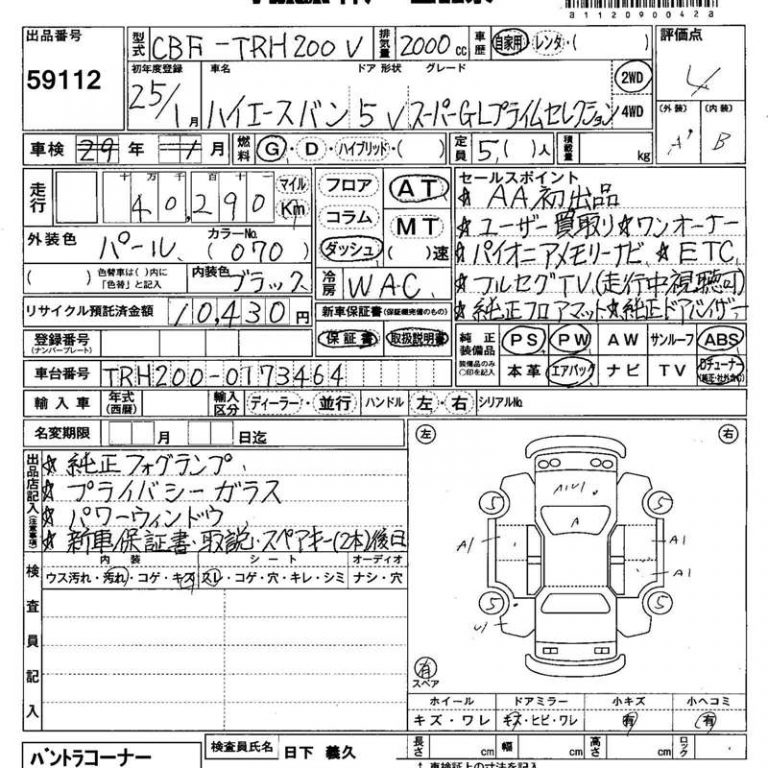 a11120900428
出品番号
59112
型式 CBF-TRH200V 排気量 2000cc 車歴 自家用・レンタ・( )
初年度登録 車名 ドア 形状 グレード
25/1月 ハイエースバン 5 V スーパーGLプライムセレクション 2WD 4WD
評価点
4
(外装) (内装)
A' B
車検 29年 1月 燃料 G・D・ハイブリッド・( ) 定員 5,( )人 積載量 kg
走行 十 万 千 百 十 一 マイル Km
40,290
フロア コラム ダッシュ
AT MT ( )速
外装色 パール カラーNo. (070)
( ) 色替車は( )内に「色替」と記入 内装色 ブラック
冷房 WAC
リサイクル預託済金額 10,430円
新車保証書(保証継完備のもの)
保証書 取扱説明書
登録番号
(ナンバープレート)
車台番号 TRH200-0173464
セールスポイント
☆ AA初出品
☆ ユーザー買取り☆ワンオーナー
☆ パイオニアメモリーナビ ☆ETC
☆ フルセグTV(走行中視聴可)
☆純正フロアマット☆純正ドアバイザー
純正装備品 PS PW AW サンルーフ ABS
装備品のみ○印を記入 本革 エアバック ナビ TV Dチューナー
輸入車 年式(西暦) 輸入区分 ディーラー・並行 ハンドル 左・右 シリアルNo.
名変期限 月 日迄
出品店記入(注意事項)
☆ 純正フォグランプ
☆ プライバシーガラス
☆ パワーウィンドウ
☆ 新車保証書・取説・スペアキー(2本)後日
検査員記入
内装 シート オーディオ
ウス汚れ・汚れ・コゲ・キズ スレ・コゲ・穴・キレ・シミ ナシ・穴
左 右
A1U1
A
5 5
A1 A1
A1
5 5
U1
有
スペア
ホイール ドアミラー 小キズ 小ヘコミ
キズ・ワレ キズ・ヒビ・ワレ 有 有
バントラコーナー
検査員氏名 日下 義久
長さ cm 幅 cm 高さ cm ロック
↑車検証上の寸法を記入